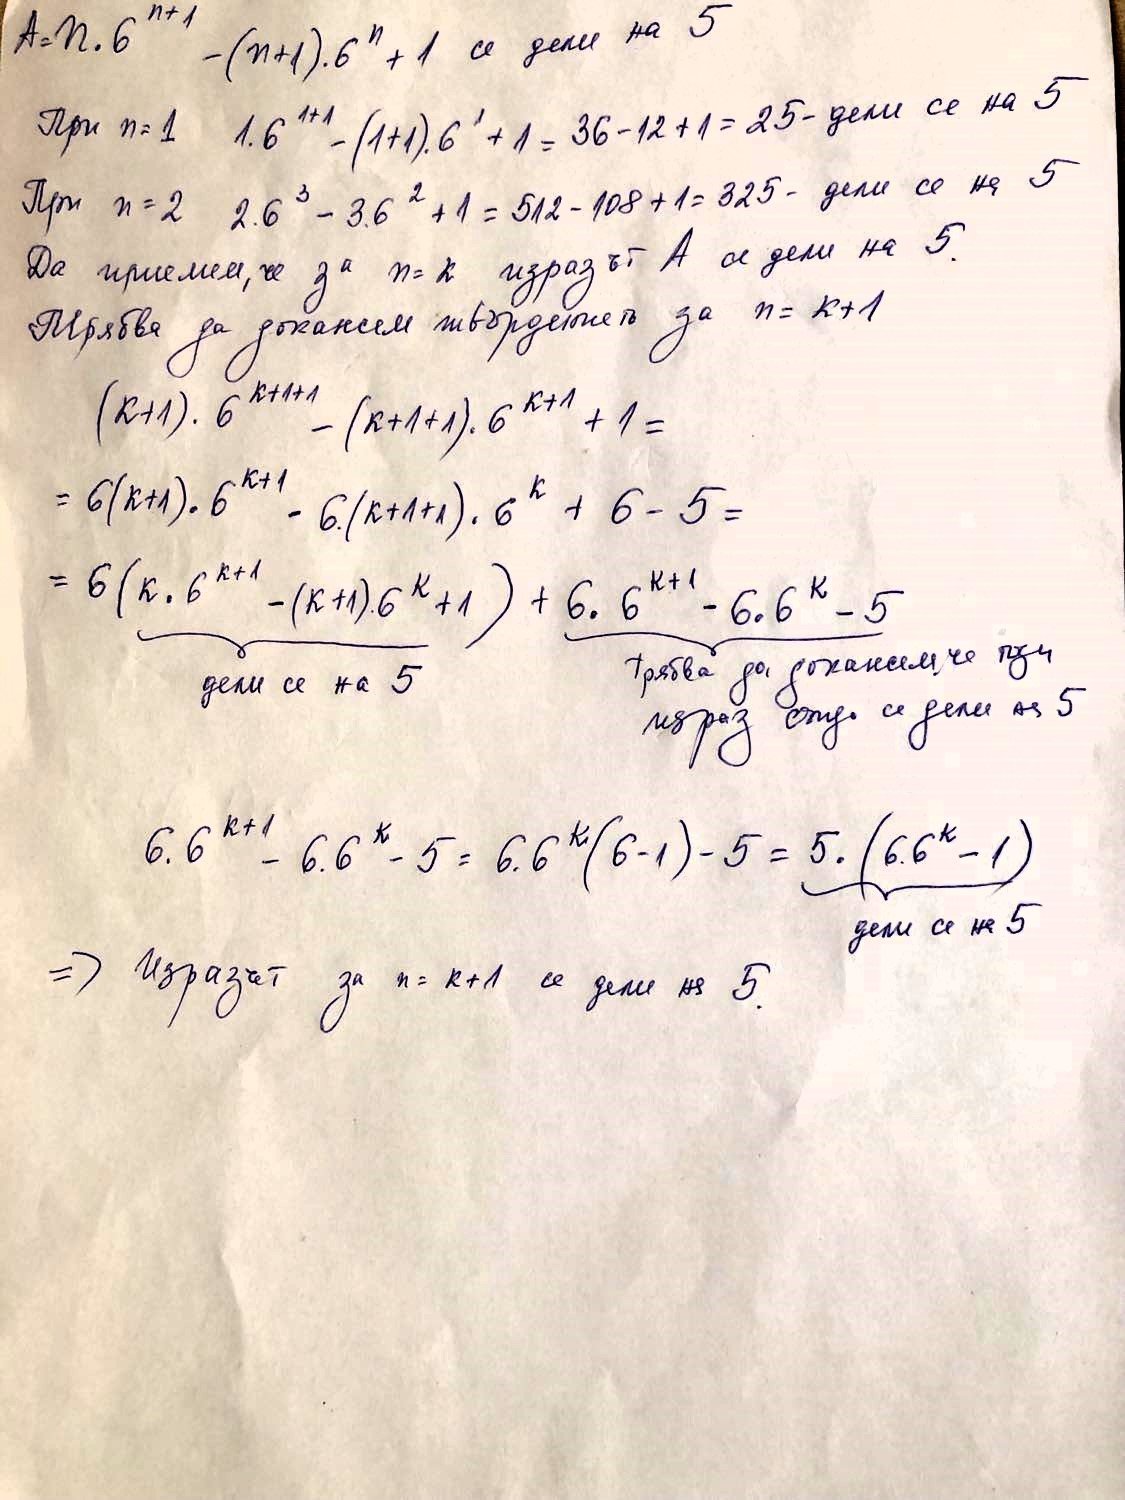 A = n.6^{n+1} - (n+1).6^n + 1 се дели на 5
При n=1 1.6^{1+1} - (1+1).6^1 + 1 = 36-12+1 = 25 - дели се на 5
При n=2 2.6^3 - 3.6^2 + 1 = 512-108+1 = 325 - дели се на 5
Да приемем, че за n=k изразът A се дели на 5.
Трябва да докажем твърдението за n=k+1
(k+1).6^{k+1+1} - (k+1+1).6^{k+1} + 1 =
= 6(k+1).6^{k+1} - 6.(k+1+1).6^k + 6 - 5 =
= 6(k.6^{k+1} - (k+1).6^k + 1) + 6.6^{k+1} - 6.6^k - 5
дели се на 5
трябва да докажем, че
израз се дели на 5
6.6^{k+1} - 6.6^k - 5 = 6.6^k(6-1) - 5 = 5.(6.6^k - 1)
дели се на 5
=> Изразът за n=k+1 се дели на 5.